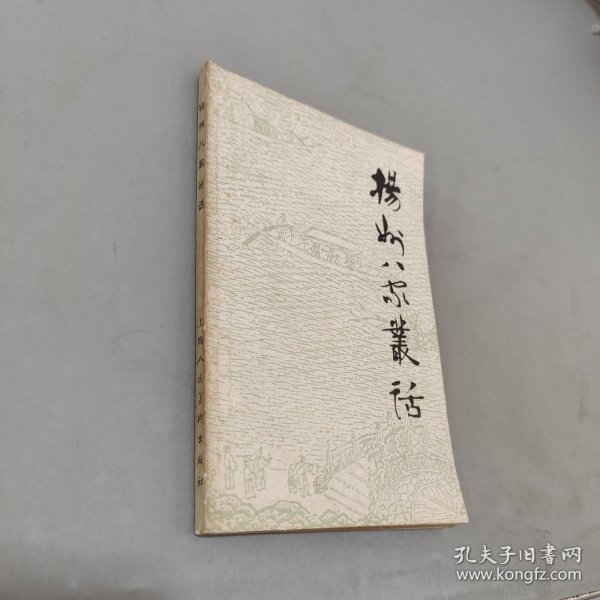 揚州八家叢話
扬州八家丛话
上海人民美术出版社
孔夫子旧书网
www.kongfz.com